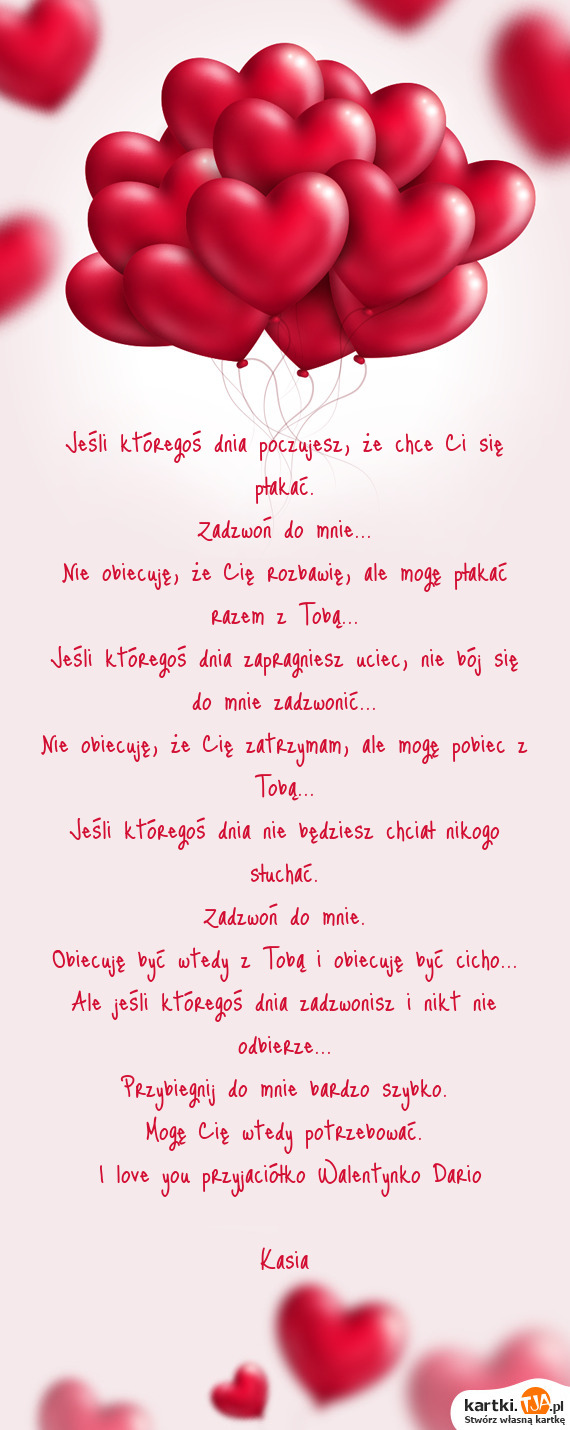 Jeśli któregoś dnia poczujesz, że chce Ci się
płakać.
Zadzwoń do mnie...
Nie obiecuję, że Cię rozbawię, ale mogę płakać
razem z Tobą...
Jeśli któregoś dnia zapragniesz uciec, nie bój się
do mnie zadzwonić...
Nie obiecuję, że Cię zatrzymam, ale mogę pobiec z
Tobą...
Jeśli któregoś dnia nie będziesz chciał nikogo
słuchać.
Zadzwoń do mnie.
Obiecuję być wtedy z Tobą i obiecuję być cicho...
Ale jeśli któregoś dnia zadzwonisz i nikt nie
odbierze...
Przybiegnij do mnie bardzo szybko.
Mogę Cię wtedy potrzebować.
I love you przyjaciółko Walentynko Dario
Kasia
kartki.TJA.pl
Stwórz własną kartkę